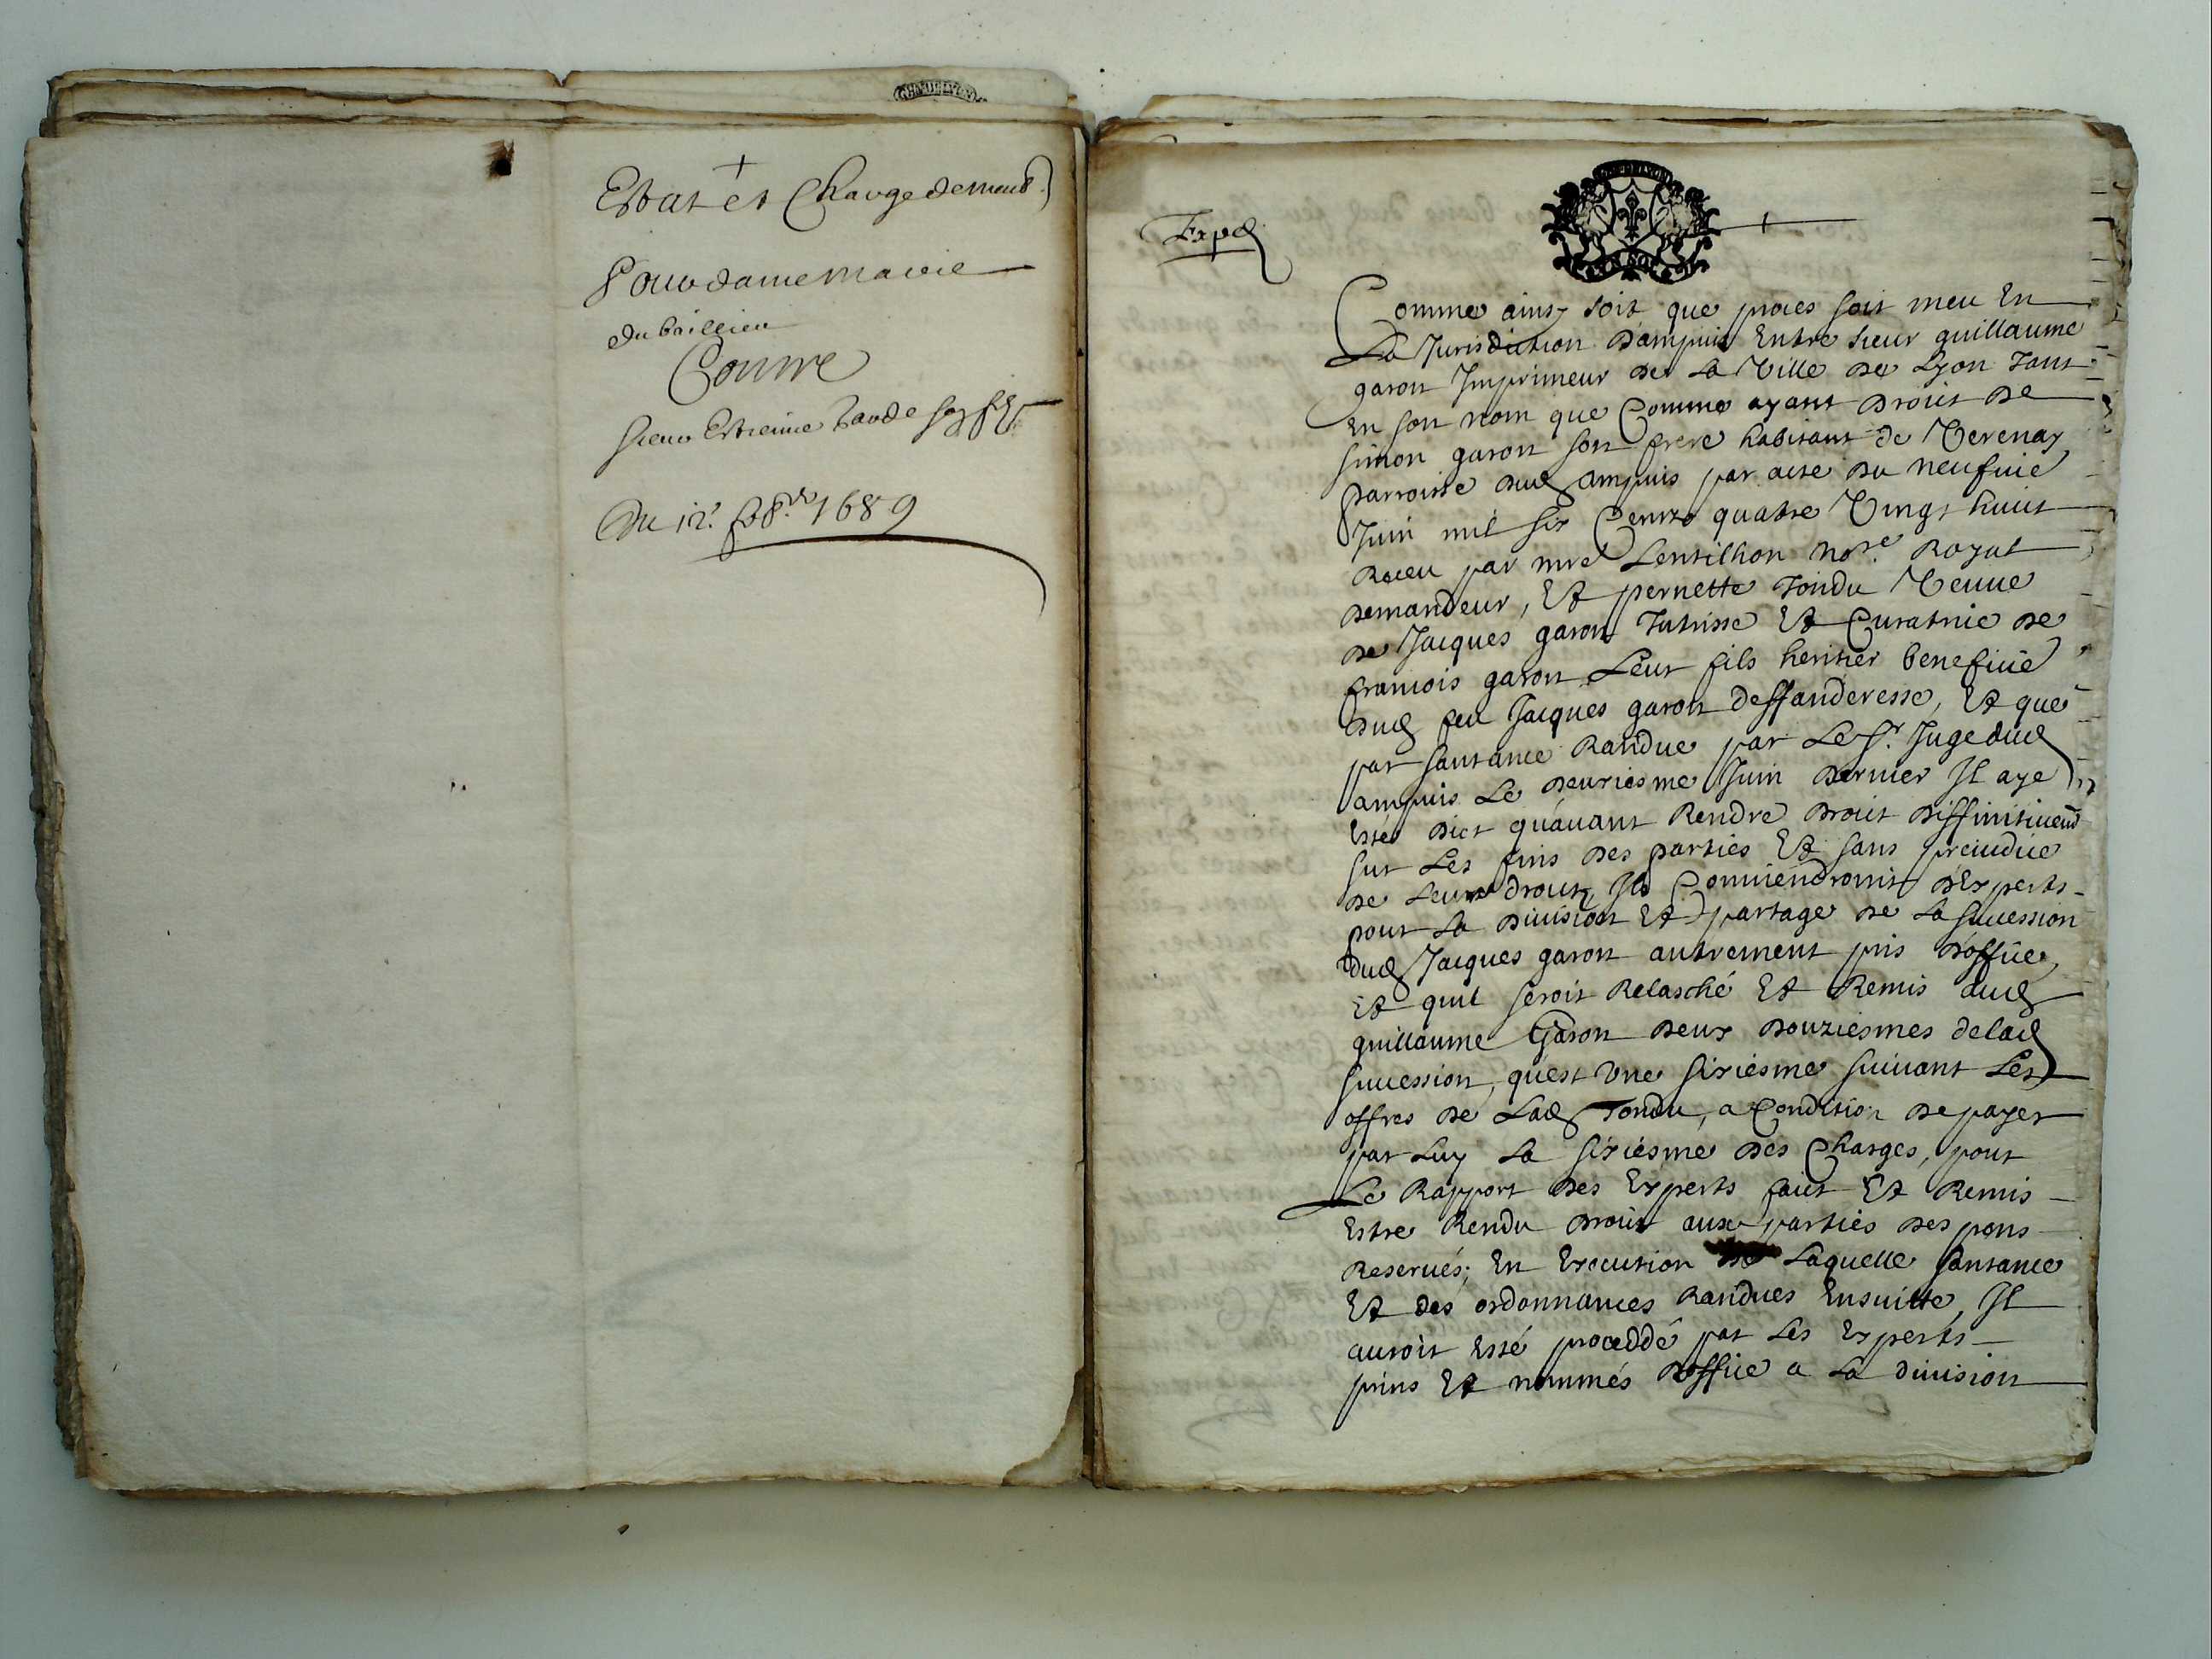 Estat et Charge de meub.
Pour dame marie
du baillieu
Contre
sieur Estienne
Du 12e. 8bre 1689
Expd
Comme ainsy soit que proces soit meu En
La Jurisdiction d'ampuis Entre sieur guillaume
garon Imprimeur de La Ville de Lyon Tant
En son nom que Comme ayant droict de
simon garon son frere habitant de Verenay
parroisse dud ampuis par acte du neufvie
Juin mil six Centz quatre Vingt huict
Receu par mre Lentilhon nore. Royal
demandeur, Et pernette Tondu Veuve
de Jacques garon Tutrisse Et Curatrice de
francois garon Leur fils heritier beneficié
dud feu Jacques garon deffanderesse, Et que
par santance Randue par Le sr. Juge dud
ampuis Le deuxiesme Juin dernier Il aye
Esté dict quauant Rendre droict diffinitivemt
sur Les fins des parties Et sans preiudice
de Leurs droicts, Ils Conviendront d'Experts
pour La division Et partage de La succession
dud Jacques garon autrement pris d'office,
Et quil seroit Relasché Et Remis aud
guillaume Garon deux douziesmes de lad
succession, quest Une sixiesme suivant Les
offres de Lad Tondu, a Condition de payer
par Luy La sixiesme des Charges, pour
Le Rapport des Experts faict Et Remis
Estre Rendu droict aux parties despens
Reservés; En Execution de Laquelle santance
Et des ordonnances Randues Ensuitte, Il
auroit Esté proceddé par Les Experts
prins Et nommés d'office a La division